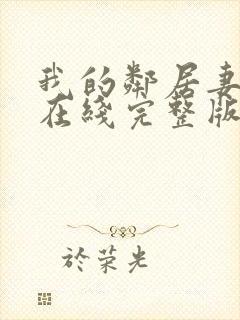 我的鄰居妻
在綫完整版
於荣光